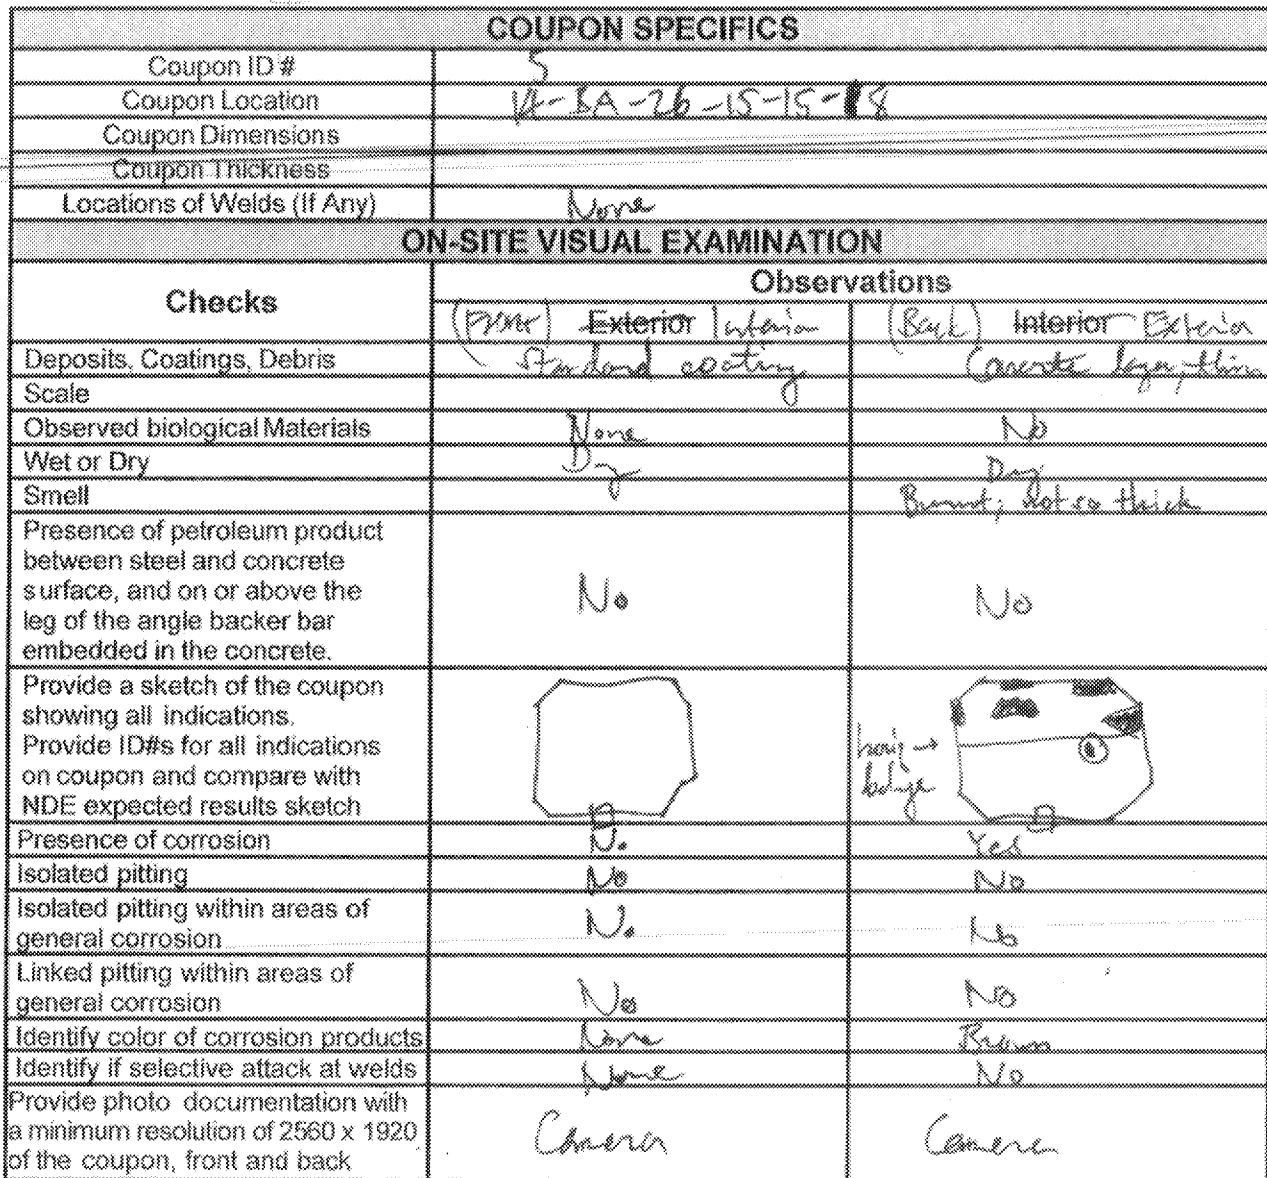 COUPON SPECIFICS
Coupon ID # 5
Coupon Location -BA-26-15-15-18
Coupon Dimensions
Coupon Thickness
Locations of Welds (If Any) None
ON-SITE VISUAL EXAMINATION
Checks
Observations
(Front) Exterior Interior (Back) Interior Exterior
Deposits, Coatings, Debris Standard coating Concrete layer, thin
Scale
Observed biological Materials None No
Wet or Dry Dry Dry
Smell Burnt; not so thick
Presence of petroleum product
between steel and concrete
surface, and on or above the
leg of the angle backer bar
embedded in the concrete.
No No
Provide a sketch of the coupon
showing all indications.
Provide ID#s for all indications
on coupon and compare with
NDE expected results sketch
Presence of corrosion No Yes
Isolated pitting No No
Isolated pitting within areas of
general corrosion No No
Linked pitting within areas of
general corrosion No No
Identify color of corrosion products None Brown
Identify if selective attack at welds None No
Provide photo documentation with
a minimum resolution of 2560 x 1920
of the coupon, front and back
Camera Camera